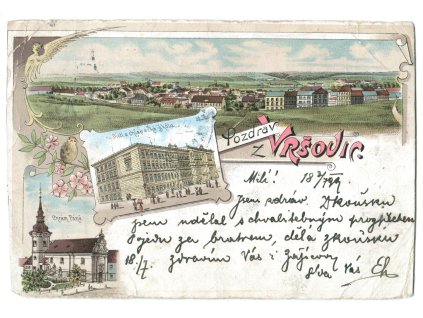 Pozdrav
z Vršovic.
Chrám Páně.
Milí! 18 3/7 99
jsem zdráv. Zkoušku
jsem udělal s chvalitebným prospěchem
Pojedu za bratrem, dělá zkoušku
18./7. zdravím Vás i
Vás